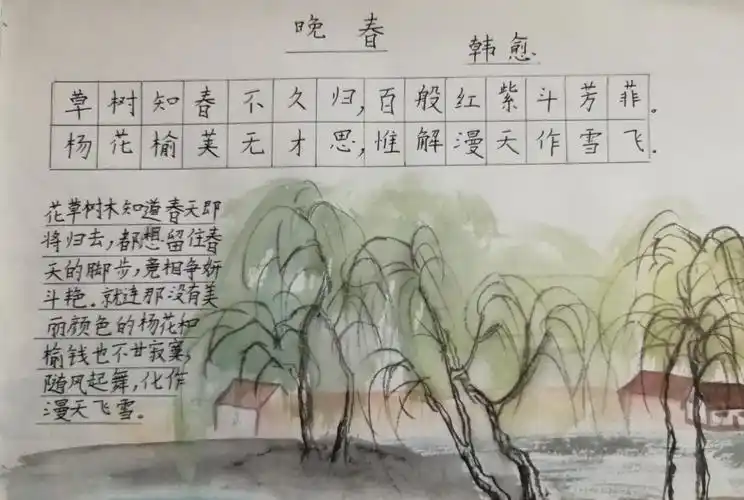 晚春
韩愈
草树知春不久归,百般红紫斗芳菲。
杨花榆荚无才思,惟解漫天作雪飞.
花草树木知道春天即
将归去,都想留住春
天的脚步,竟相争妍
斗艳.就连那没有美
丽颜色的杨花和
榆钱也不甘寂寞,
随风起舞,化作
漫天飞雪。